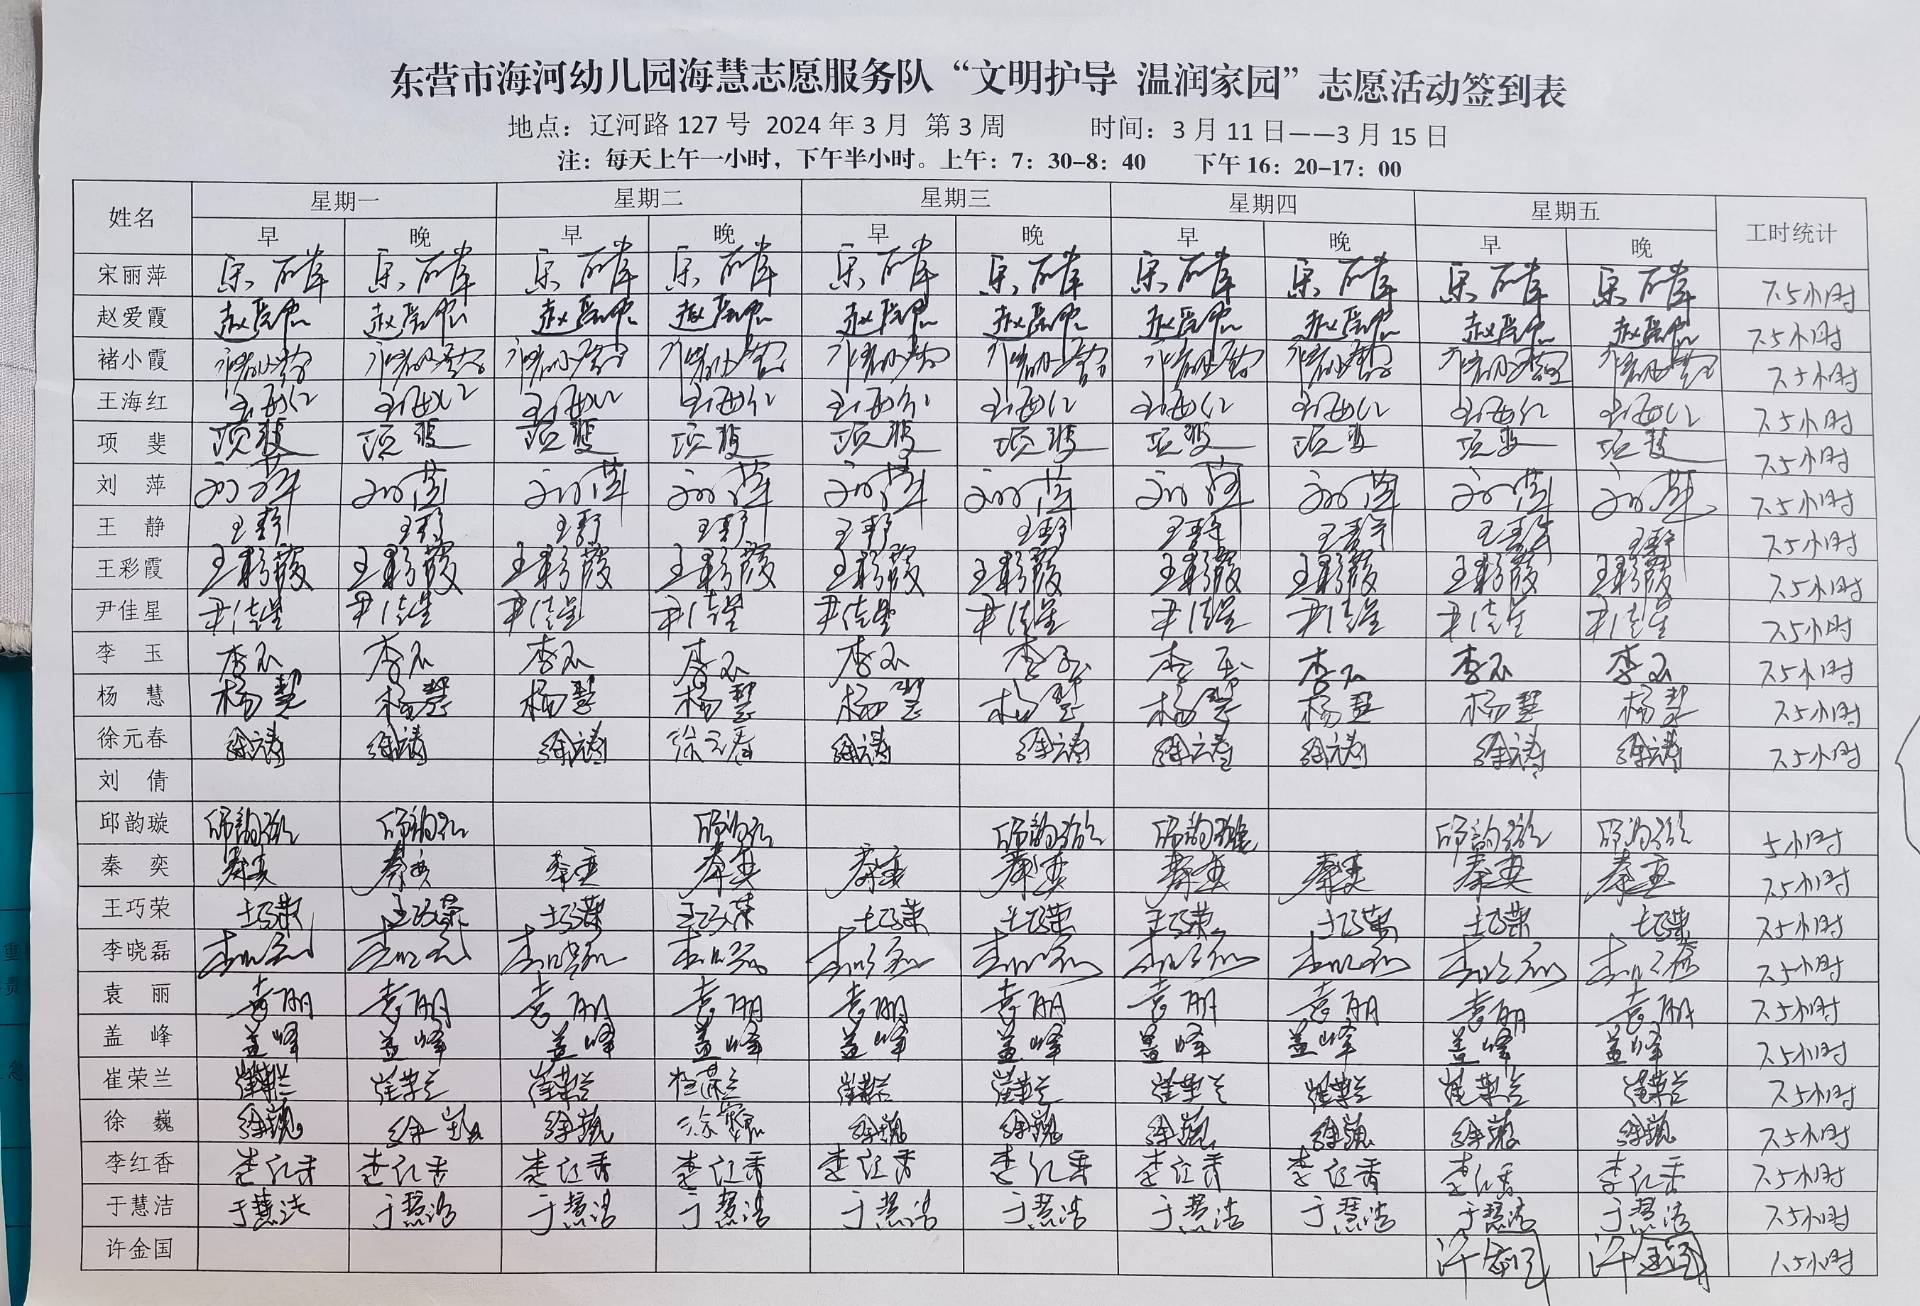 东营市海河幼儿园海慧志愿服务队“文明护导 温润家园”志愿活动签到表
地点：辽河路 127 号 2024 年 3 月 第 3 周 时间：3 月 11 日——3 月 15 日
注：每天上午一小时，下午半小时。上午：7：30-8：40 下午 16：20-17：00
姓名 星期一 星期二 星期三 星期四 星期五 工时统计
早 晚 早 晚 早 晚 早 晚 早 晚
宋丽萍 宋丽萍 宋丽萍 宋丽萍 宋丽萍 宋丽萍 宋丽萍 宋丽萍 宋丽萍 宋丽萍 宋丽萍 7.5小时
赵爱霞 赵爱霞 赵爱霞 赵爱霞 赵爱霞 赵爱霞 赵爱霞 赵爱霞 赵爱霞 赵爱霞 赵爱霞 7.5小时
褚小霞 褚小霞 褚小霞 褚小霞 褚小霞 褚小霞 褚小霞 褚小霞 褚小霞 褚小霞 褚小霞 7.5小时
王海红 王海红 王海红 王海红 王海红 王海红 王海红 王海红 王海红 王海红 王海红 7.5小时
项 斐 项斐 项斐 项斐 项斐 项斐 项斐 项斐 项斐 项斐 项斐 7.5小时
刘 萍 刘萍 刘萍 刘萍 刘萍 刘萍 刘萍 刘萍 刘萍 刘萍 刘萍 7.5小时
王 静 王静 王静 王静 王静 王静 王静 王静 王静 王静 王静 7.5小时
王彩霞 王彩霞 王彩霞 王彩霞 王彩霞 王彩霞 王彩霞 王彩霞 王彩霞 王彩霞 王彩霞 7.5小时
尹佳星 尹佳星 尹佳星 尹佳星 尹佳星 尹佳星 尹佳星 尹佳星 尹佳星 尹佳星 尹佳星 7.5小时
李 玉 李玉 李玉 李玉 李玉 李玉 李玉 李玉 李玉 李玉 李玉 7.5小时
杨 慧 杨慧 杨慧 杨慧 杨慧 杨慧 杨慧 杨慧 杨慧 杨慧 杨慧 7.5小时
徐元春 徐元春 徐元春 徐元春 徐元春 徐元春 徐元春 徐元春 徐元春 徐元春 徐元春 7.5小时
刘 倩
邱韵璇 邱韵璇 邱韵璇 邱韵璇 邱韵璇 邱韵璇 邱韵璇 邱韵璇 5小时
秦 奕 秦奕 秦奕 秦奕 秦奕 秦奕 秦奕 秦奕 秦奕 秦奕 秦奕 7.5小时
王巧荣 王巧荣 王巧荣 王巧荣 王巧荣 王巧荣 王巧荣 王巧荣 王巧荣 王巧荣 王巧荣 7.5小时
李晓磊 李晓磊 李晓磊 李晓磊 李晓磊 李晓磊 李晓磊 李晓磊 李晓磊 李晓磊 李晓磊 7.5小时
袁 丽 袁丽 袁丽 袁丽 袁丽 袁丽 袁丽 袁丽 袁丽 袁丽 袁丽 7.5小时
盖 峰 盖峰 盖峰 盖峰 盖峰 盖峰 盖峰 盖峰 盖峰 盖峰 盖峰 7.5小时
崔荣兰 崔荣兰 崔荣兰 崔荣兰 崔荣兰 崔荣兰 崔荣兰 崔荣兰 崔荣兰 崔荣兰 崔荣兰 7.5小时
徐 巍 徐巍 徐巍 徐巍 徐巍 徐巍 徐巍 徐巍 徐巍 徐巍 徐巍 7.5小时
李红香 李红香 李红香 李红香 李红香 李红香 李红香 李红香 李红香 李红香 李红香 7.5小时
于慧洁 于慧洁 于慧洁 于慧洁 于慧洁 于慧洁 于慧洁 于慧洁 于慧洁 于慧洁 于慧洁 7.5小时
许金国 许金国 许金国 1.5小时